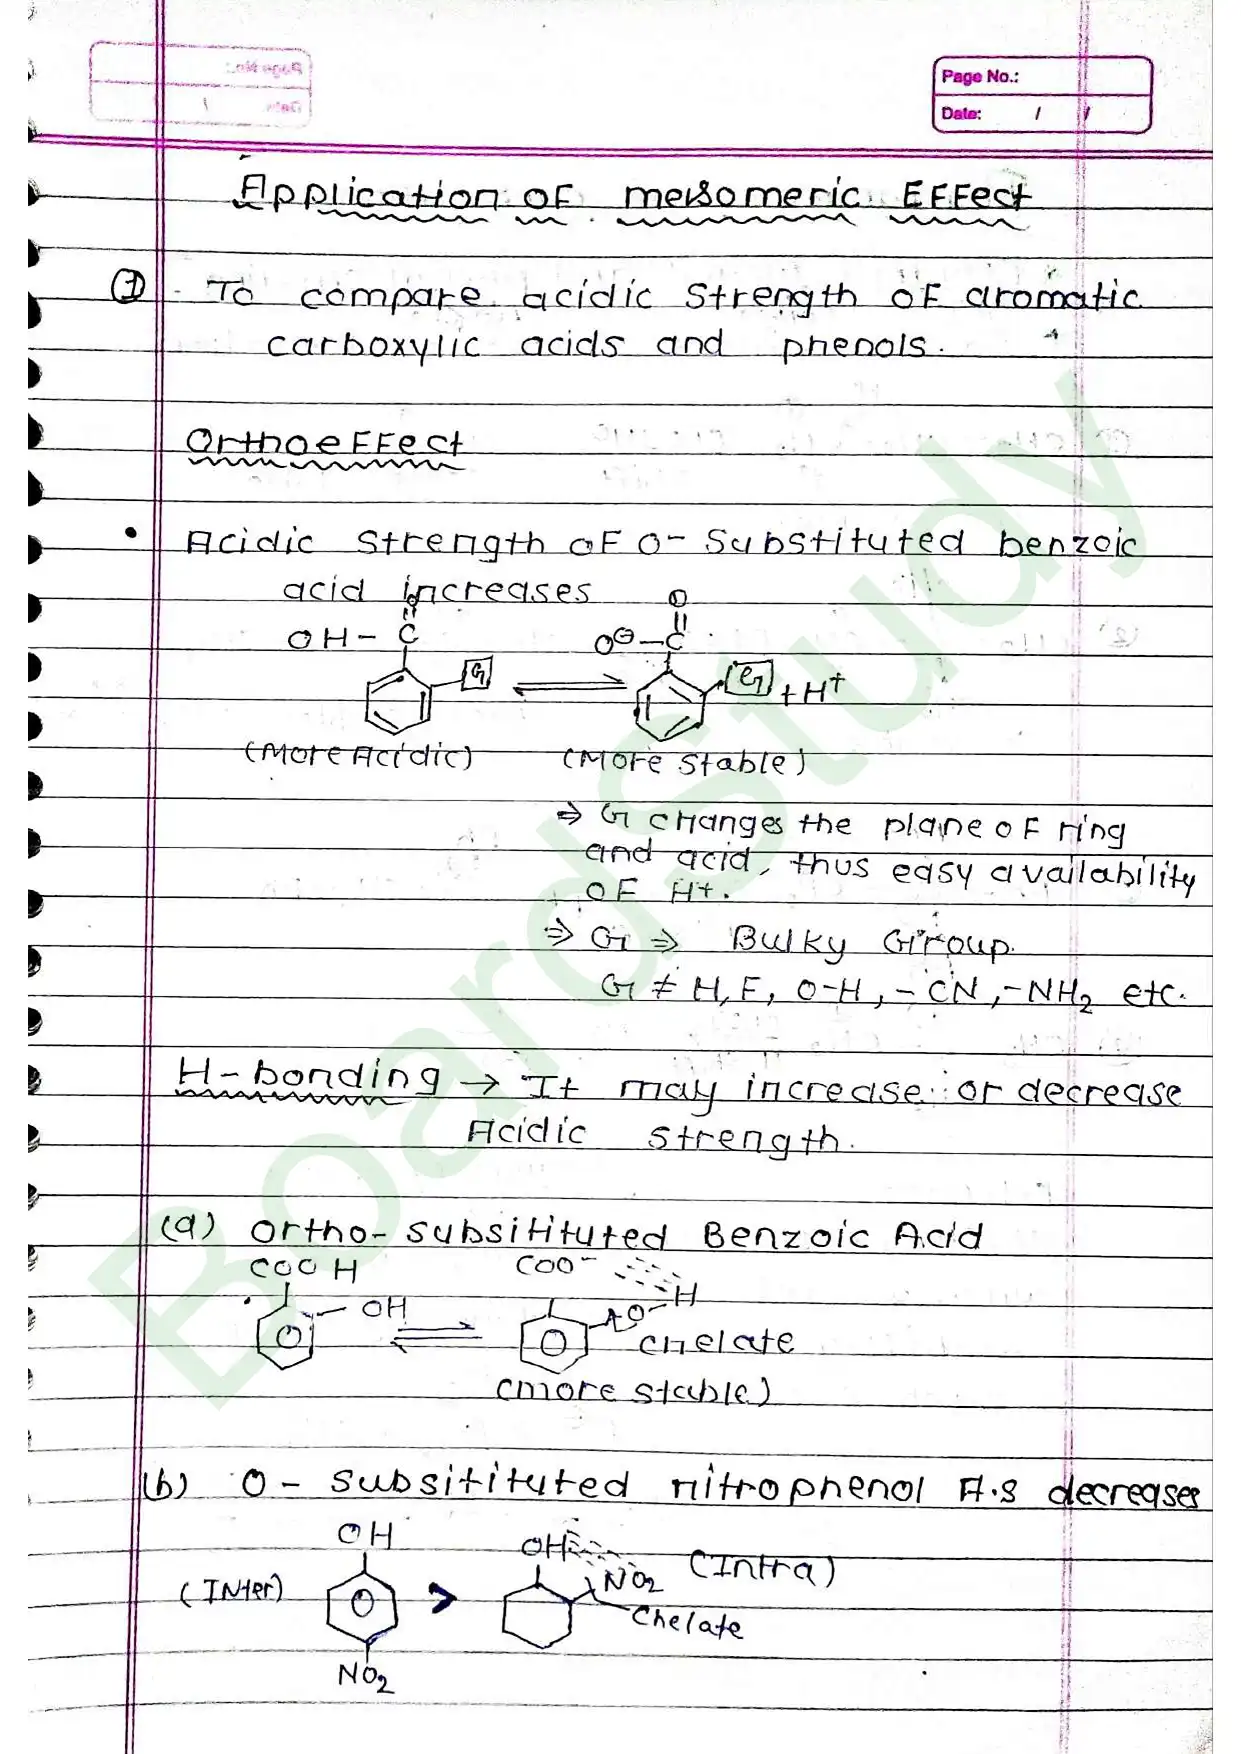 Page No.:
Date: / /
Application of mesomeric Effect
① To compare acidic strength of aromatic
carboxylic acids and phenols.
Orthoeffect
• Acidic strength of o- substituted benzoic
acid increases
O O
OH - C O⊖ - C
G G + H+
(More Acidic) (More stable)
⇒ G changes the plane of ring
and acid, thus easy availability
of H+.
⇒ G ⇒ Bulky Group.
G ≠ H, F, O-H, -CN, -NH2 etc.
H-bonding → It may increase or decrease
Acidic strength.
(a) Ortho-subsitituted Benzoic Acid
COOH COO-
OH O-H
chelate
(more stable)
(b) O- subsitituted nitrophenol A.S decreases
OH OH
(Inter) > NO2 (Intra)
Chelate
NO2
BoardStudy